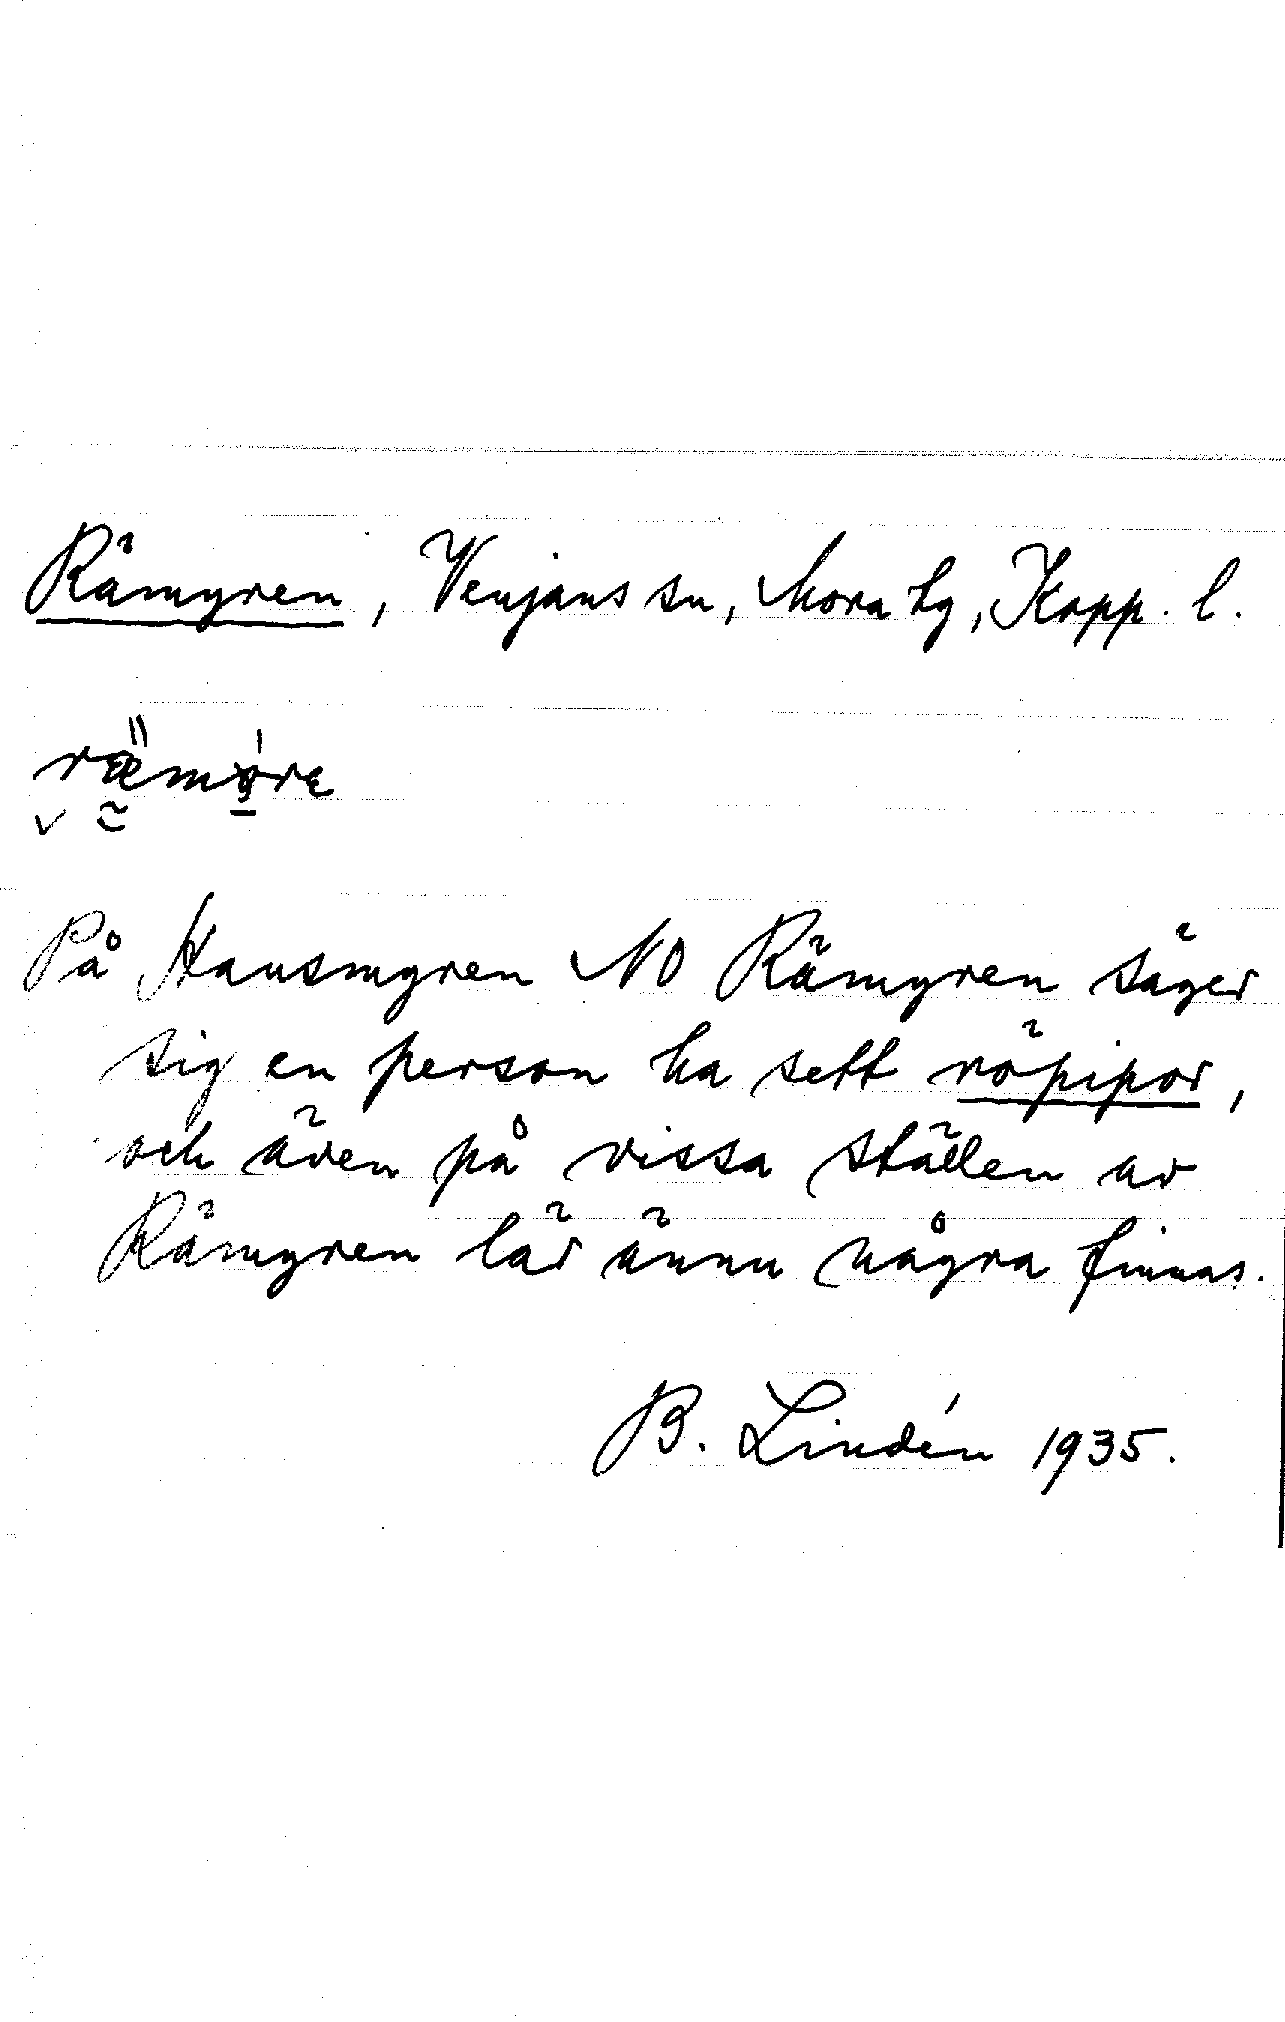 Rämyren, Venjans sn, Mora tg, Kopp. l.
På Hansmyren NO Rämyren säger
sig en person ha sett röpipor,
och även på vissa ställen av
Rämyren lär ännu några finnas.
B. Lindén 1935.